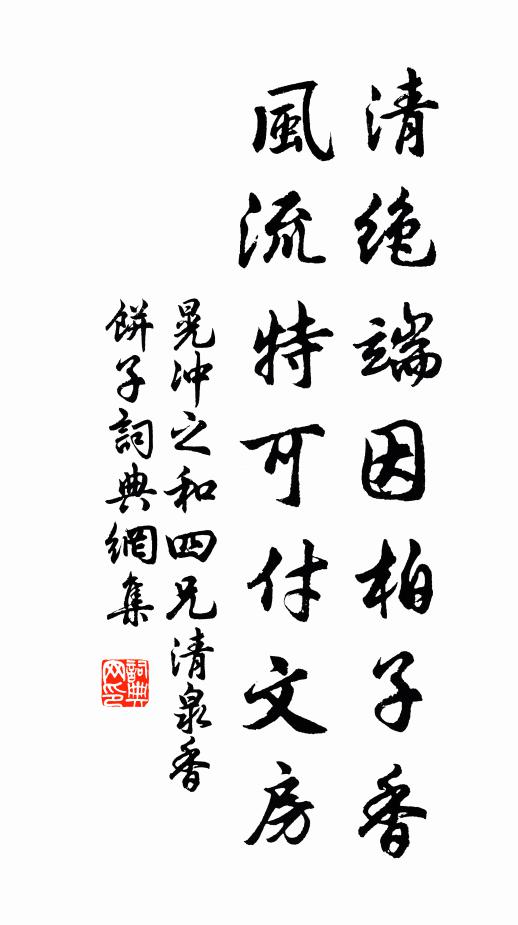 清絶端因柏子香
風流特可付文房
晁沖之和四兄清泉香
餅子詞典網集
詞典网印